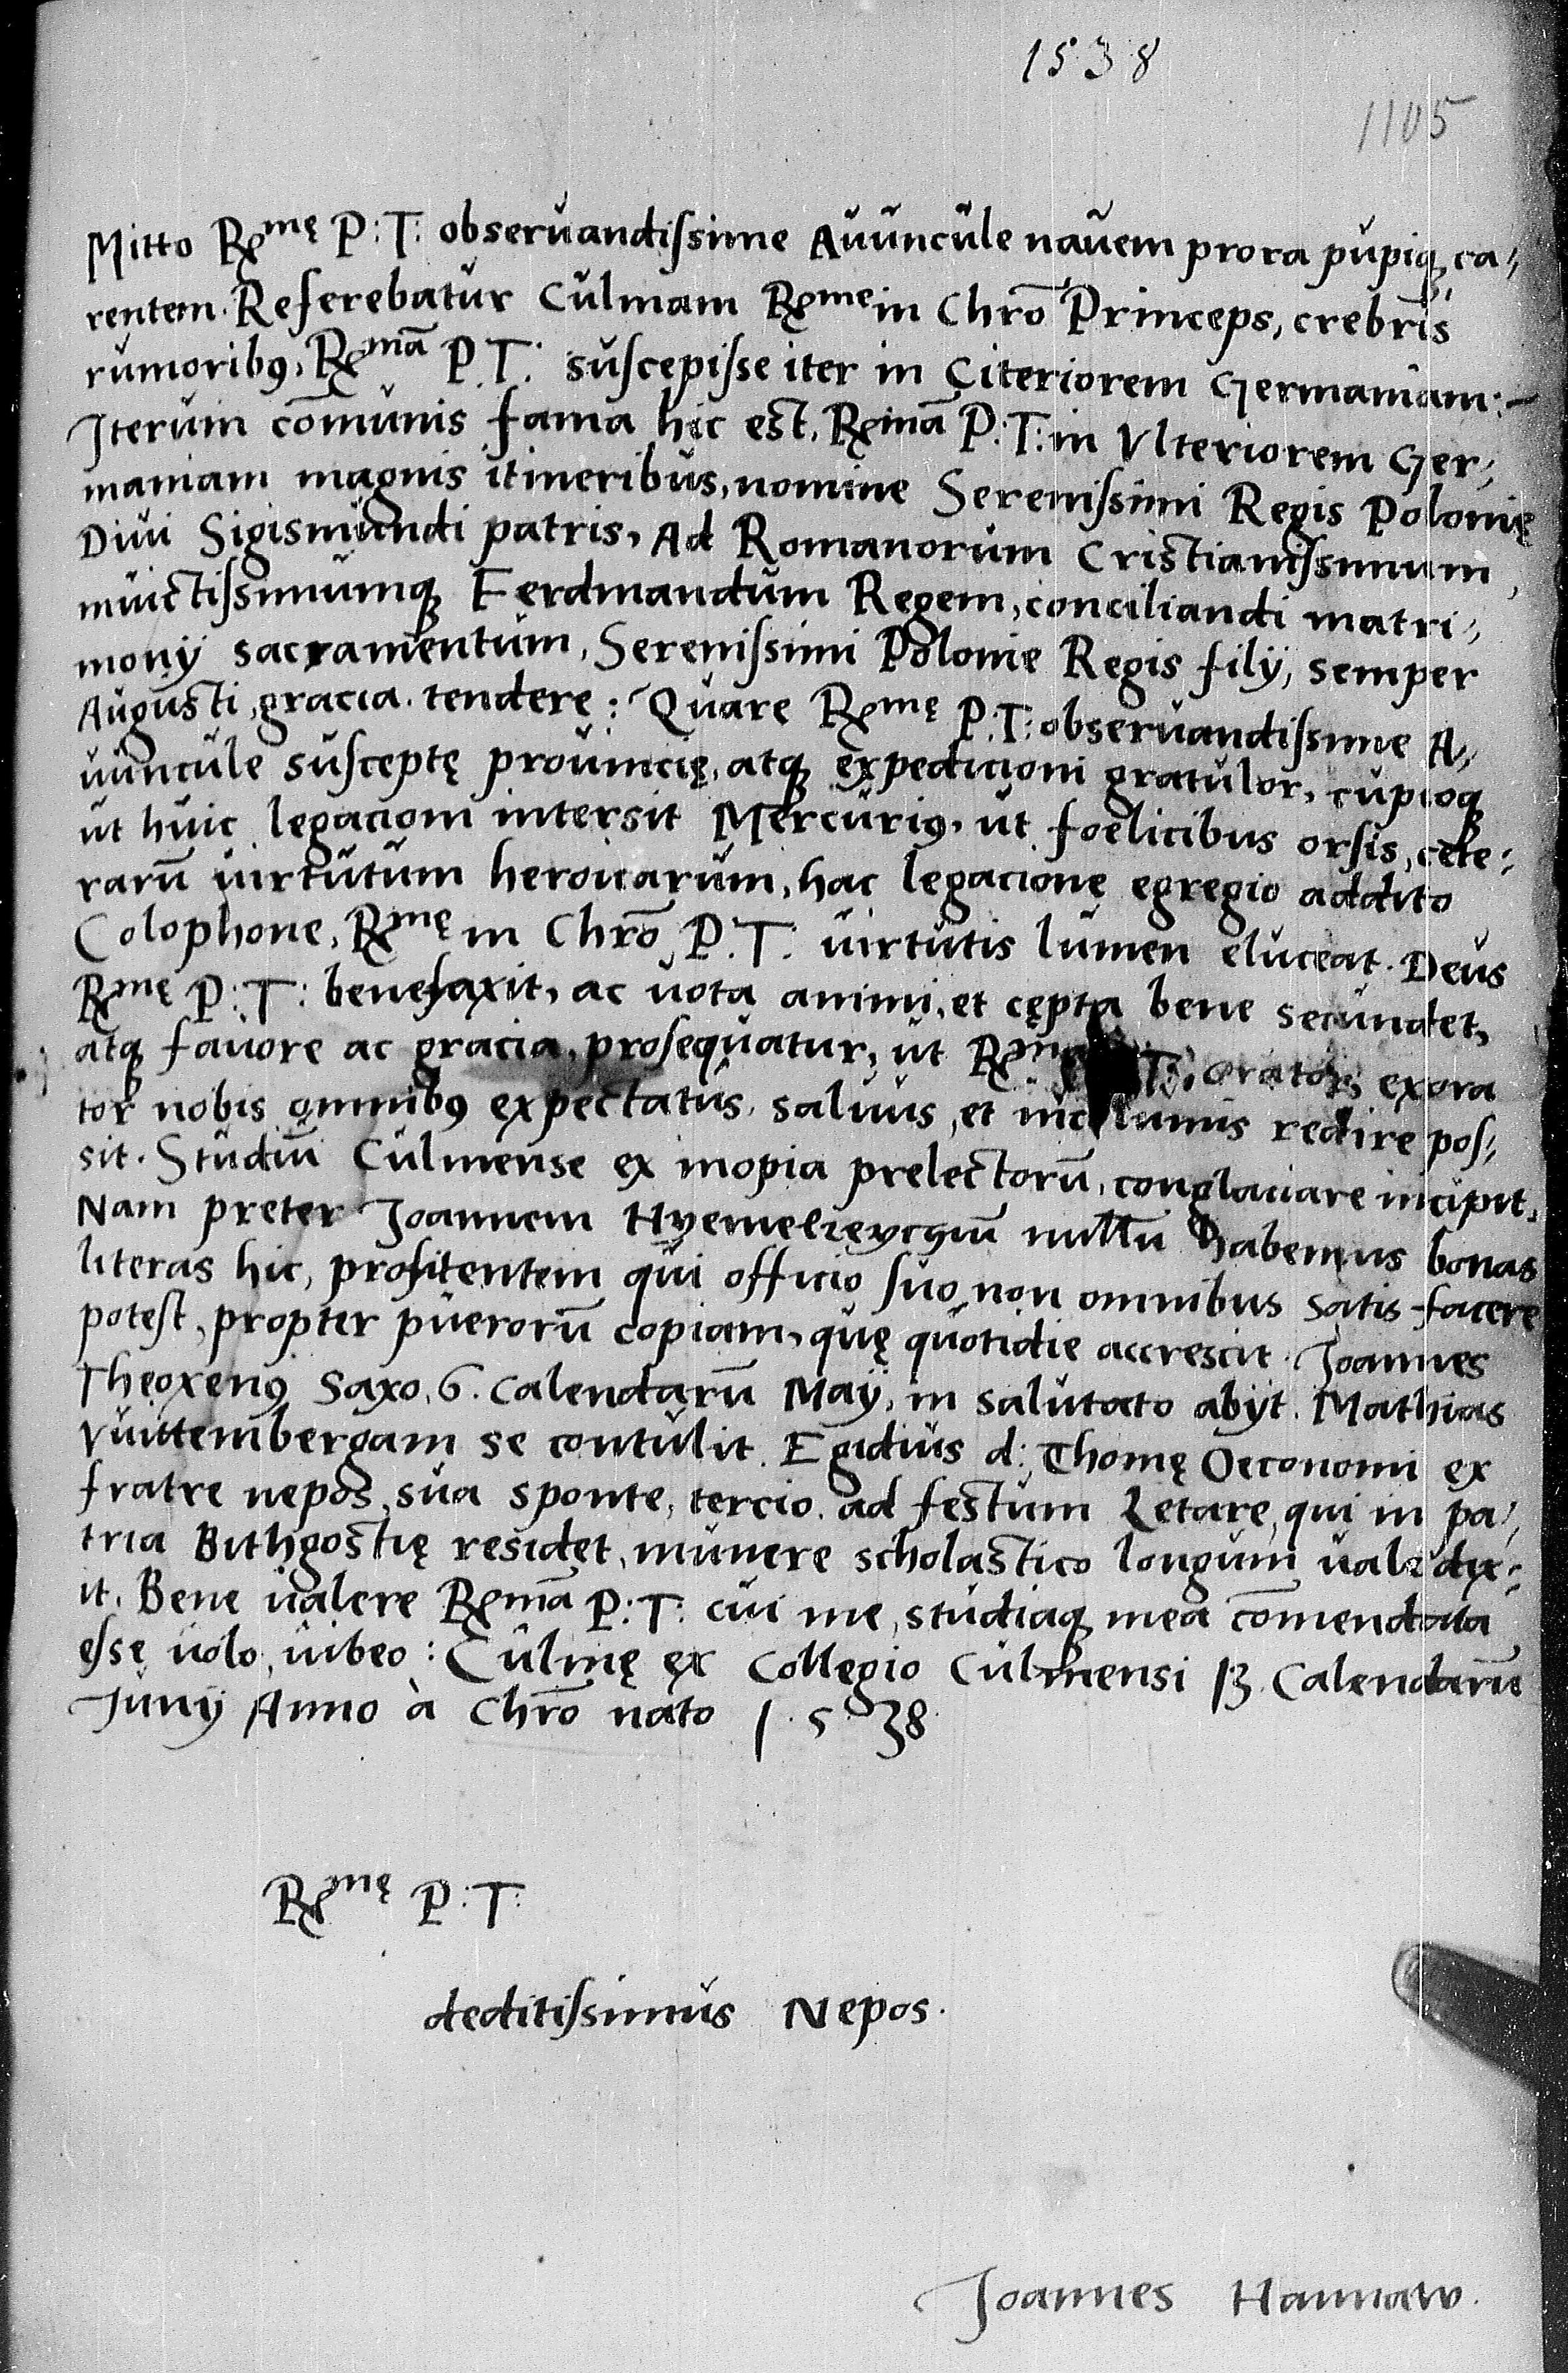 1538
1105
Mitto Rmę P:T: obseruandissime Auuncule nauem prora pupiq; ca-
rentem. Referebatur Culmam Rme in Chro Princeps, crebris
rumoribꝰ, Rmā P.T: suscepisse iter in Citeriorem Germaniam:-
Iterum cōmunis fama hic est, Rmā P:T: in Vlteriorem Ger-
maniam magnis itineribus, nomine Serenissimi Regis Polonię
Diui Sigismundi patris, Ad Romanorum Cristianissimum,
inuictissimumq; Ferdinandum Regem, conciliandi matri-
monij sacramentum, Serenissimi Polonie Regis filij, semper
Augusti, gracia. tendere: Quare Rmę P:T: obseruandissime A-
uuncule susceptę prouincię, atq; expedicioni gratulor, cupioq;
ut huic legacioni intersit Mercuriꝰ, ut foelicibus orsis, cete-
rarū uirtutum heroicarum, hac legacione egregio addito
Colophone, Rmę in Chrō P.T: uirtutis lumen eluceat. Deus
Rmę P:T: benefaxit, ac uota animi, et cępta bene secundet,
atq; fauore ac gracia, prosequatur, ut Rma T: orator, exora
tor nobis omnibꝰ expectatus, saluus, et incolumis redire pos-
sit. Studiū Culmense ex inopia prelectorū, conglaciare incipit.
Nam preter Joannem Hyemelreychū nullū habemus bonas
literas hic, profitentem qui officio suo non omnibus satis facere
potest, propter puerorū copiam, quę quotidie accrescit. Joannes
Theoxenꝰ Saxo, 6. Calendarū Maij, in salutato abijt. Mathias
Vuittembergam se contulit. Egidius d: Thomę Oeconomi ex
fratre nepos, sua sponte, tercio ad festum Letare, qui in pa-
tria Bithgostię residet, munere scholastico longum uale dix-
it. Bene ualere Rmā P:T: cui me, studiaq; mea cōmendata
esse uolo, iubeo: Culmę ex Collegio Culmensi 13. Calendarū
Junij Anno à Chrō nato 1.5.38.
Rmę P:T:
deditissimus Nepos.
Joannes Hannaw.